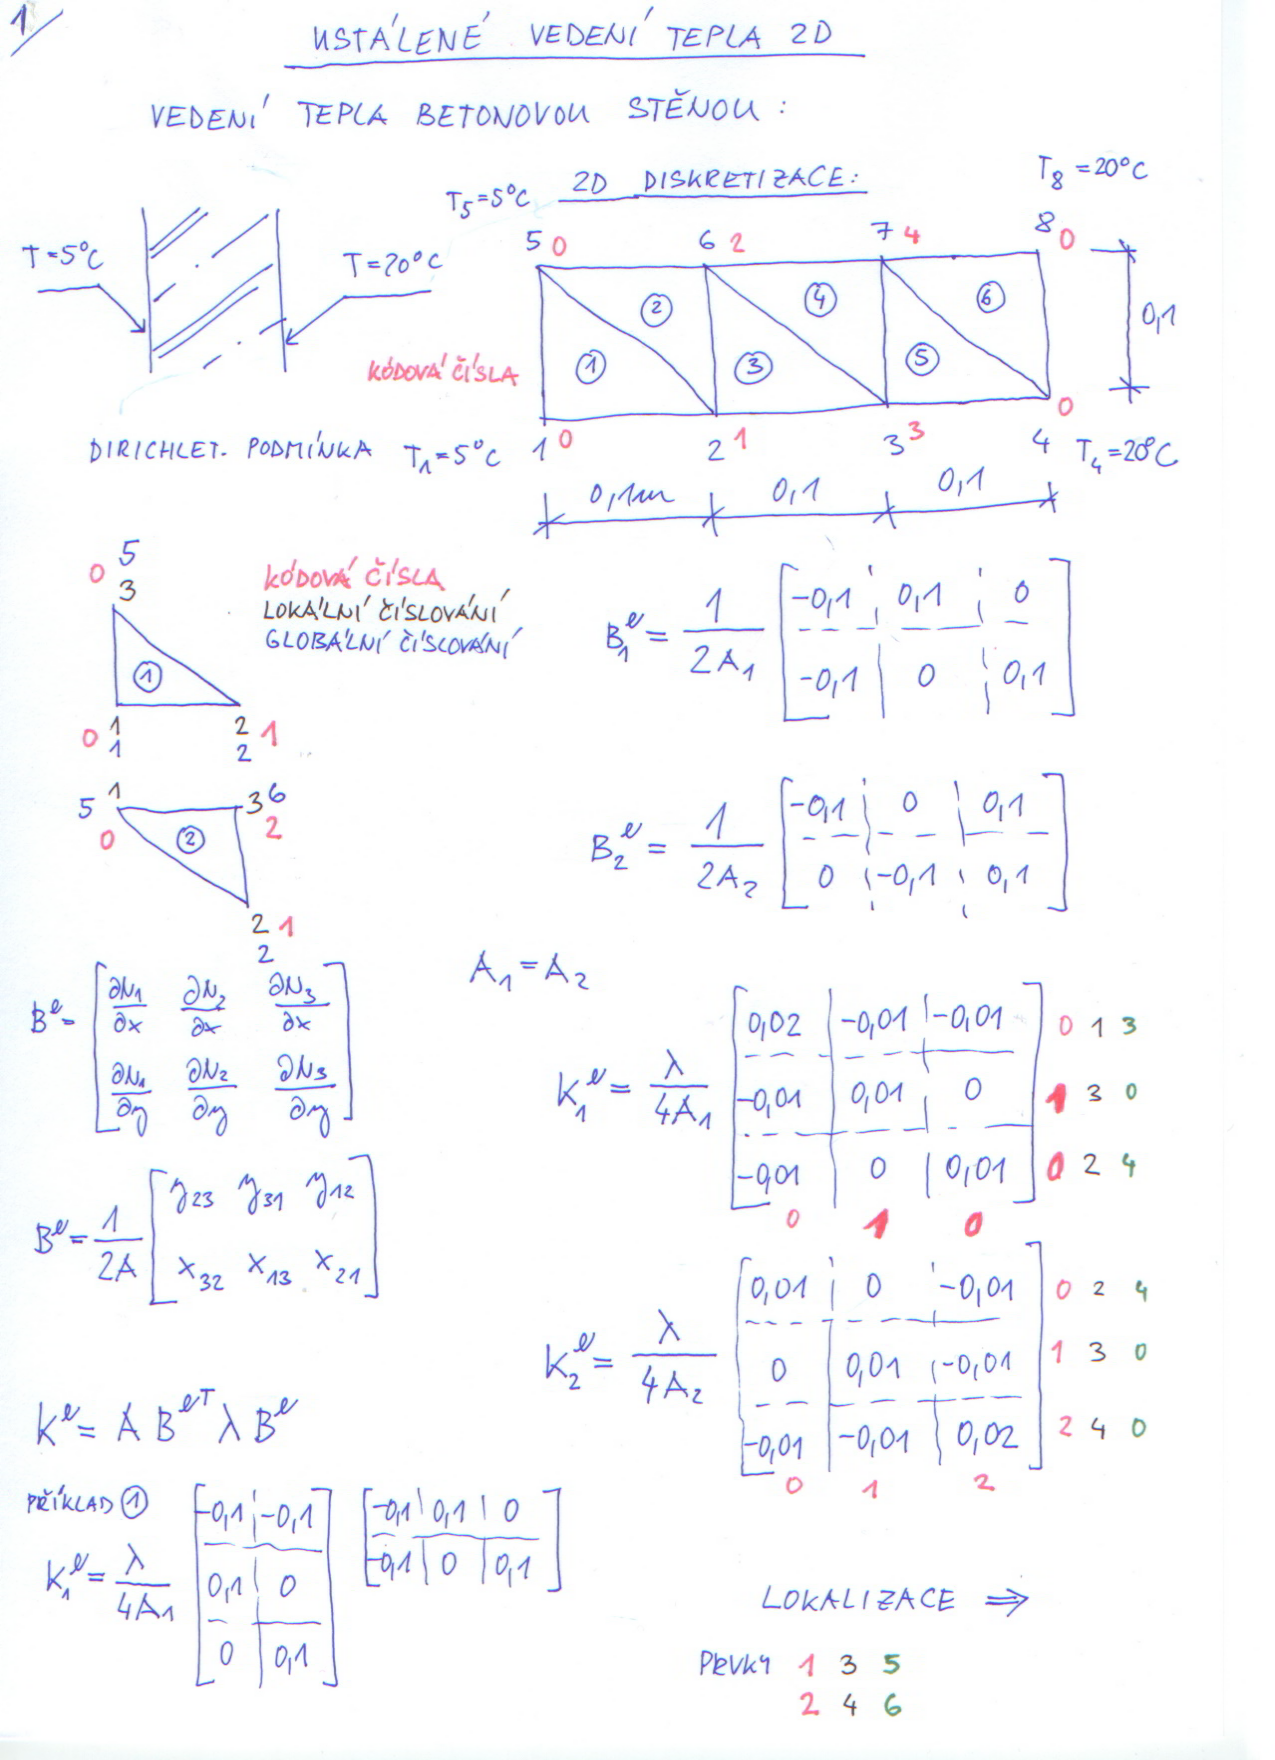 1/
USTÁLENÉ VEDENÍ TEPLA 2D
VEDENÍ TEPLA BETONOVOU STĚNOU:
T=5°C
T=20°C
2D DISKRETIZACE:
T5=5°C
T8=20°C
5 0 6 2 7 4 8 0
2 4 6
0,1
KÓDOVÁ ČÍSLA
1 3 5
DIRICHLET. PODMÍNKA T1=5°C
1 0 2 1 3 3 4 0 T4=20°C
0,1m 0,1 0,1
5
0 3
1
0 1 2 1
1 2
KÓDOVÁ ČÍSLA
LOKÁLNÍ ČÍSLOVÁNÍ
GLOBÁLNÍ ČÍSLOVÁNÍ
B1^e = 1/2A1 [-0,1 0,1 0
-0,1 0 0,1]
5 1 3 6
0 2 2
2 1
2
B2^e = 1/2A2 [-0,1 0 0,1
0 -0,1 0,1]
B^e = [∂N1/∂x ∂N2/∂x ∂N3/∂x
∂N1/∂y ∂N2/∂y ∂N3/∂y]
A1=A2
K1^e = λ/4A1 [0,02 -0,01 -0,01] 0 1 3
[-0,01 0,01 0] 1 3 0
[-0,01 0 0,01] 0 2 4
0 1 0
B^e = 1/2A [y23 y31 y12
x32 x13 x21]
K2^e = λ/4A2 [0,01 0 -0,01] 0 2 4
[0 0,01 -0,01] 1 3 0
[-0,01 -0,01 0,02] 2 4 0
0 1 2
K^e = A B^eT λ B^e
PŘÍKLAD 1
K1^e = λ/4A1 [-0,1 -0,1
0,1 0
0 0,1] [-0,1 0,1 0
-0,1 0 0,1]
LOKALIZACE ⇒
PRVKY 1 3 5
2 4 6